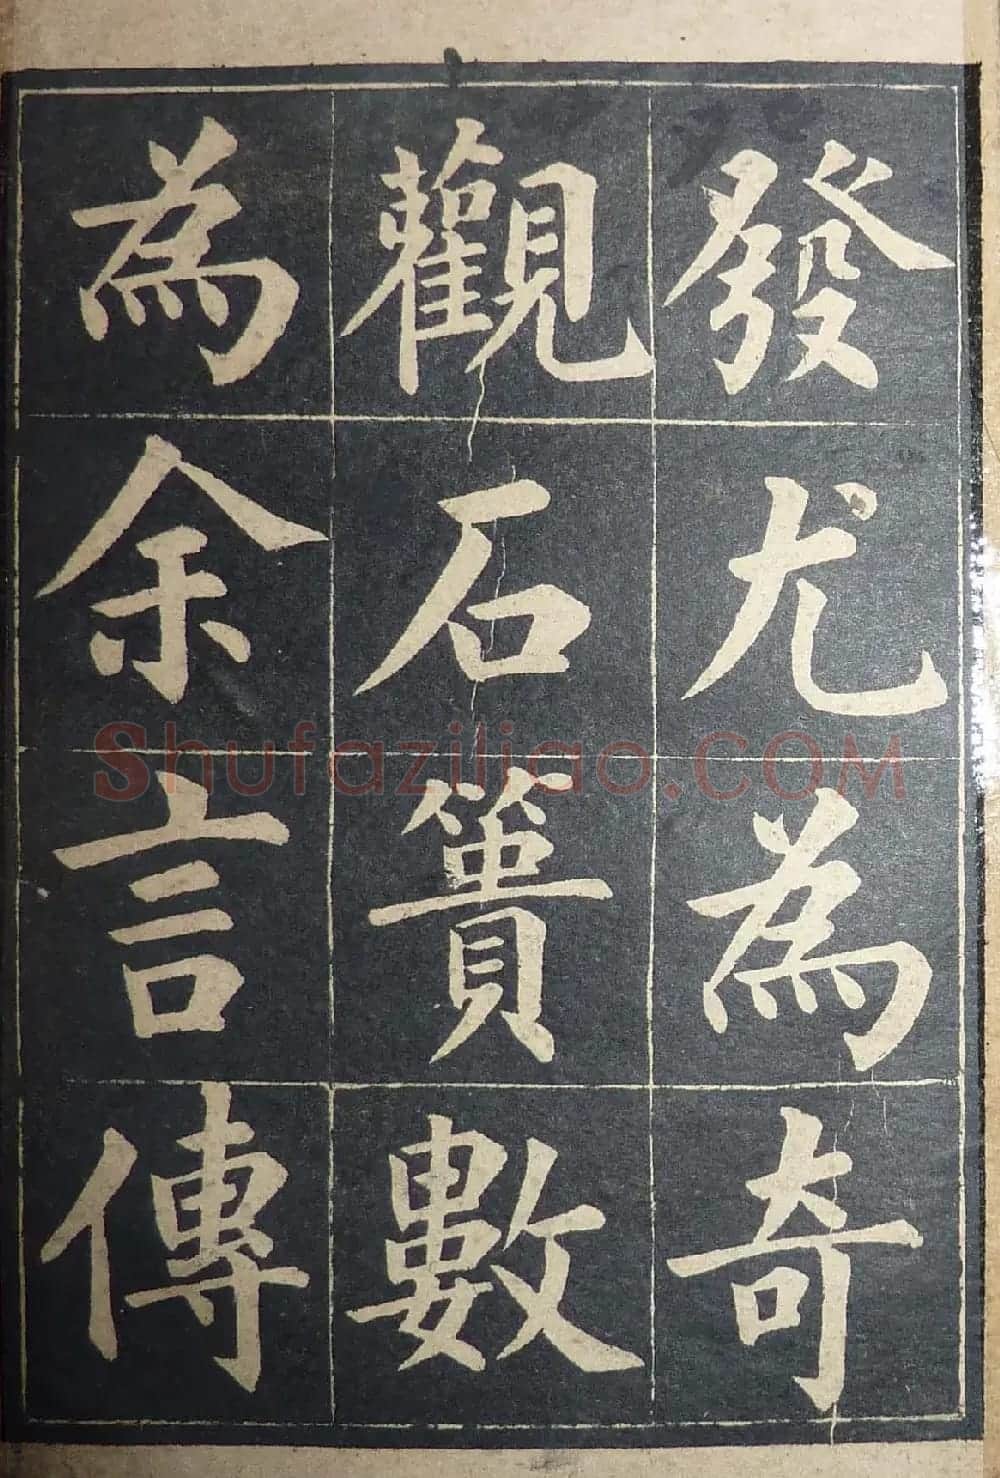 發尤為奇
觀石簣數
為余言傳
Shufaziliao.COM